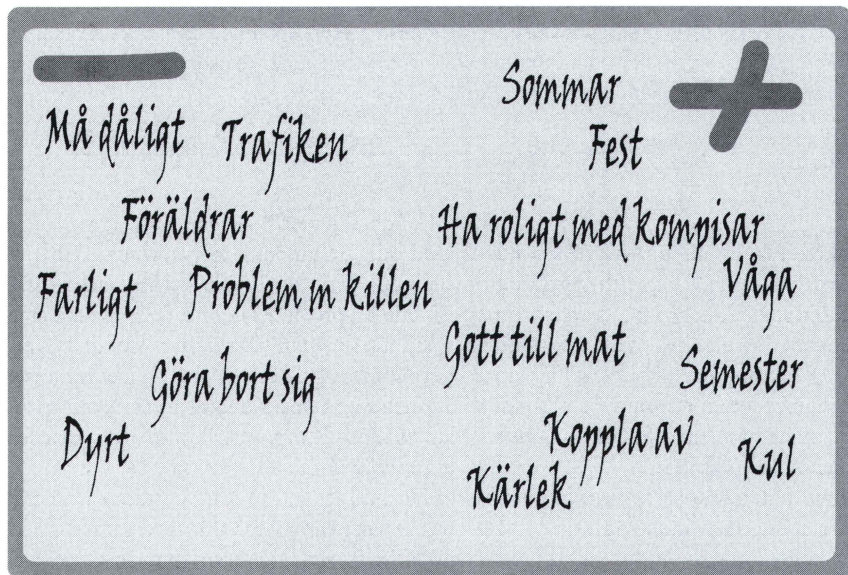 Må dåligt
Trafiken
Föräldrar
Farligt
Problem m killen
Göra bort sig
Dyrt
Sommar
Fest
Ha roligt med kompisar
Våga
Gott till mat
Semester
Koppla av
Kul
Kärlek